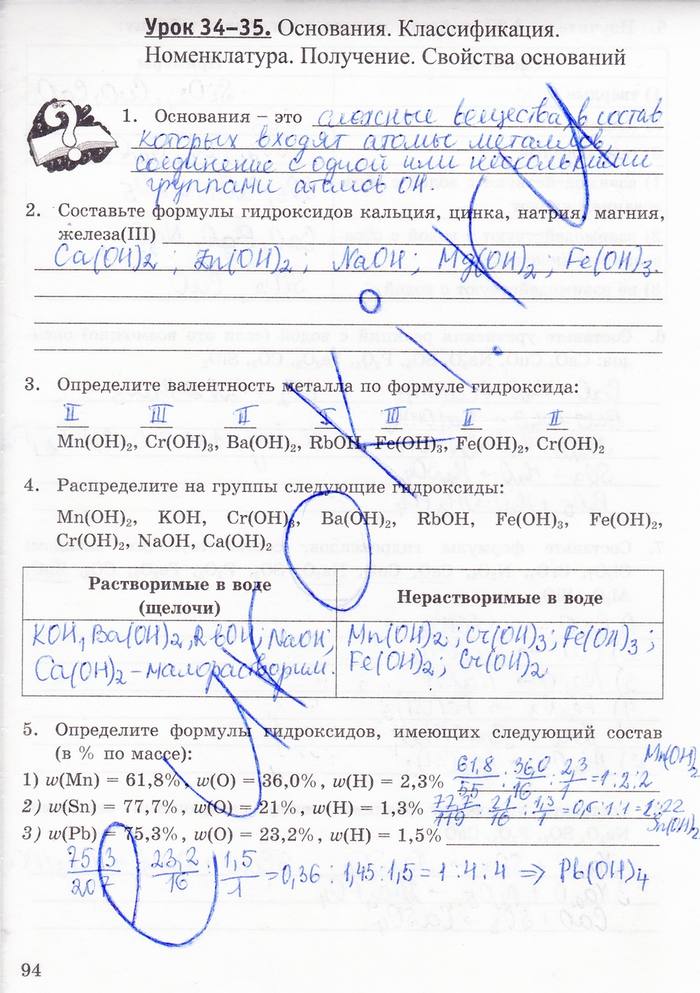 Урок 34–35. Основания. Классификация.
Номенклатура. Получение. Свойства оснований
1. Основания – это сложные вещества, в состав
которых входят атомы металлов,
соединение с одной или несколькими
группами атомов OH.
2. Составьте формулы гидроксидов кальция, цинка, натрия, магния,
железа(III)
Ca(OH)2 ; Zn(OH)2 ; NaOH ; Mg(OH)2 ; Fe(OH)3.
3. Определите валентность металла по формуле гидроксида:
II III II I III II II
Mn(OH)₂, Cr(OH)₃, Ba(OH)₂, RbOH, Fe(OH)₃, Fe(OH)₂, Cr(OH)₂
4. Распределите на группы следующие гидроксиды:
Mn(OH)₂, KOH, Cr(OH)₃, Ba(OH)₂, RbOH, Fe(OH)₃, Fe(OH)₂,
Cr(OH)₂, NaOH, Ca(OH)₂
Растворимые в воде
(щелочи)
Нерастворимые в воде
KOH, Ba(OH)2, RbOH; NaOH;
Ca(OH)2 – малорастворим.
Mn(OH)2 ; Cr(OH)3 ; Fe(OH)3 ;
Fe(OH)2 ; Cr(OH)2
5. Определите формулы гидроксидов, имеющих следующий состав
(в % по массе):
1) w(Mn) = 61,8%, w(O) = 36,0%, w(H) = 2,3% 61,8/55 : 36,0/16 : 2,3/1 = 1:2:2 Mn(OH)2
2) w(Sn) = 77,7%, w(O) = 21%, w(H) = 1,3% 77,7/119 : 21/16 : 1,3/1 Sn(OH)2
3) w(Pb) = 75,3%, w(O) = 23,2%, w(H) = 1,5%
75,3/207 : 23,2/16 : 1,5/1 = 0,36 : 1,45 : 1,5 = 1 : 4 : 4 ⇒ Pb(OH)4
94